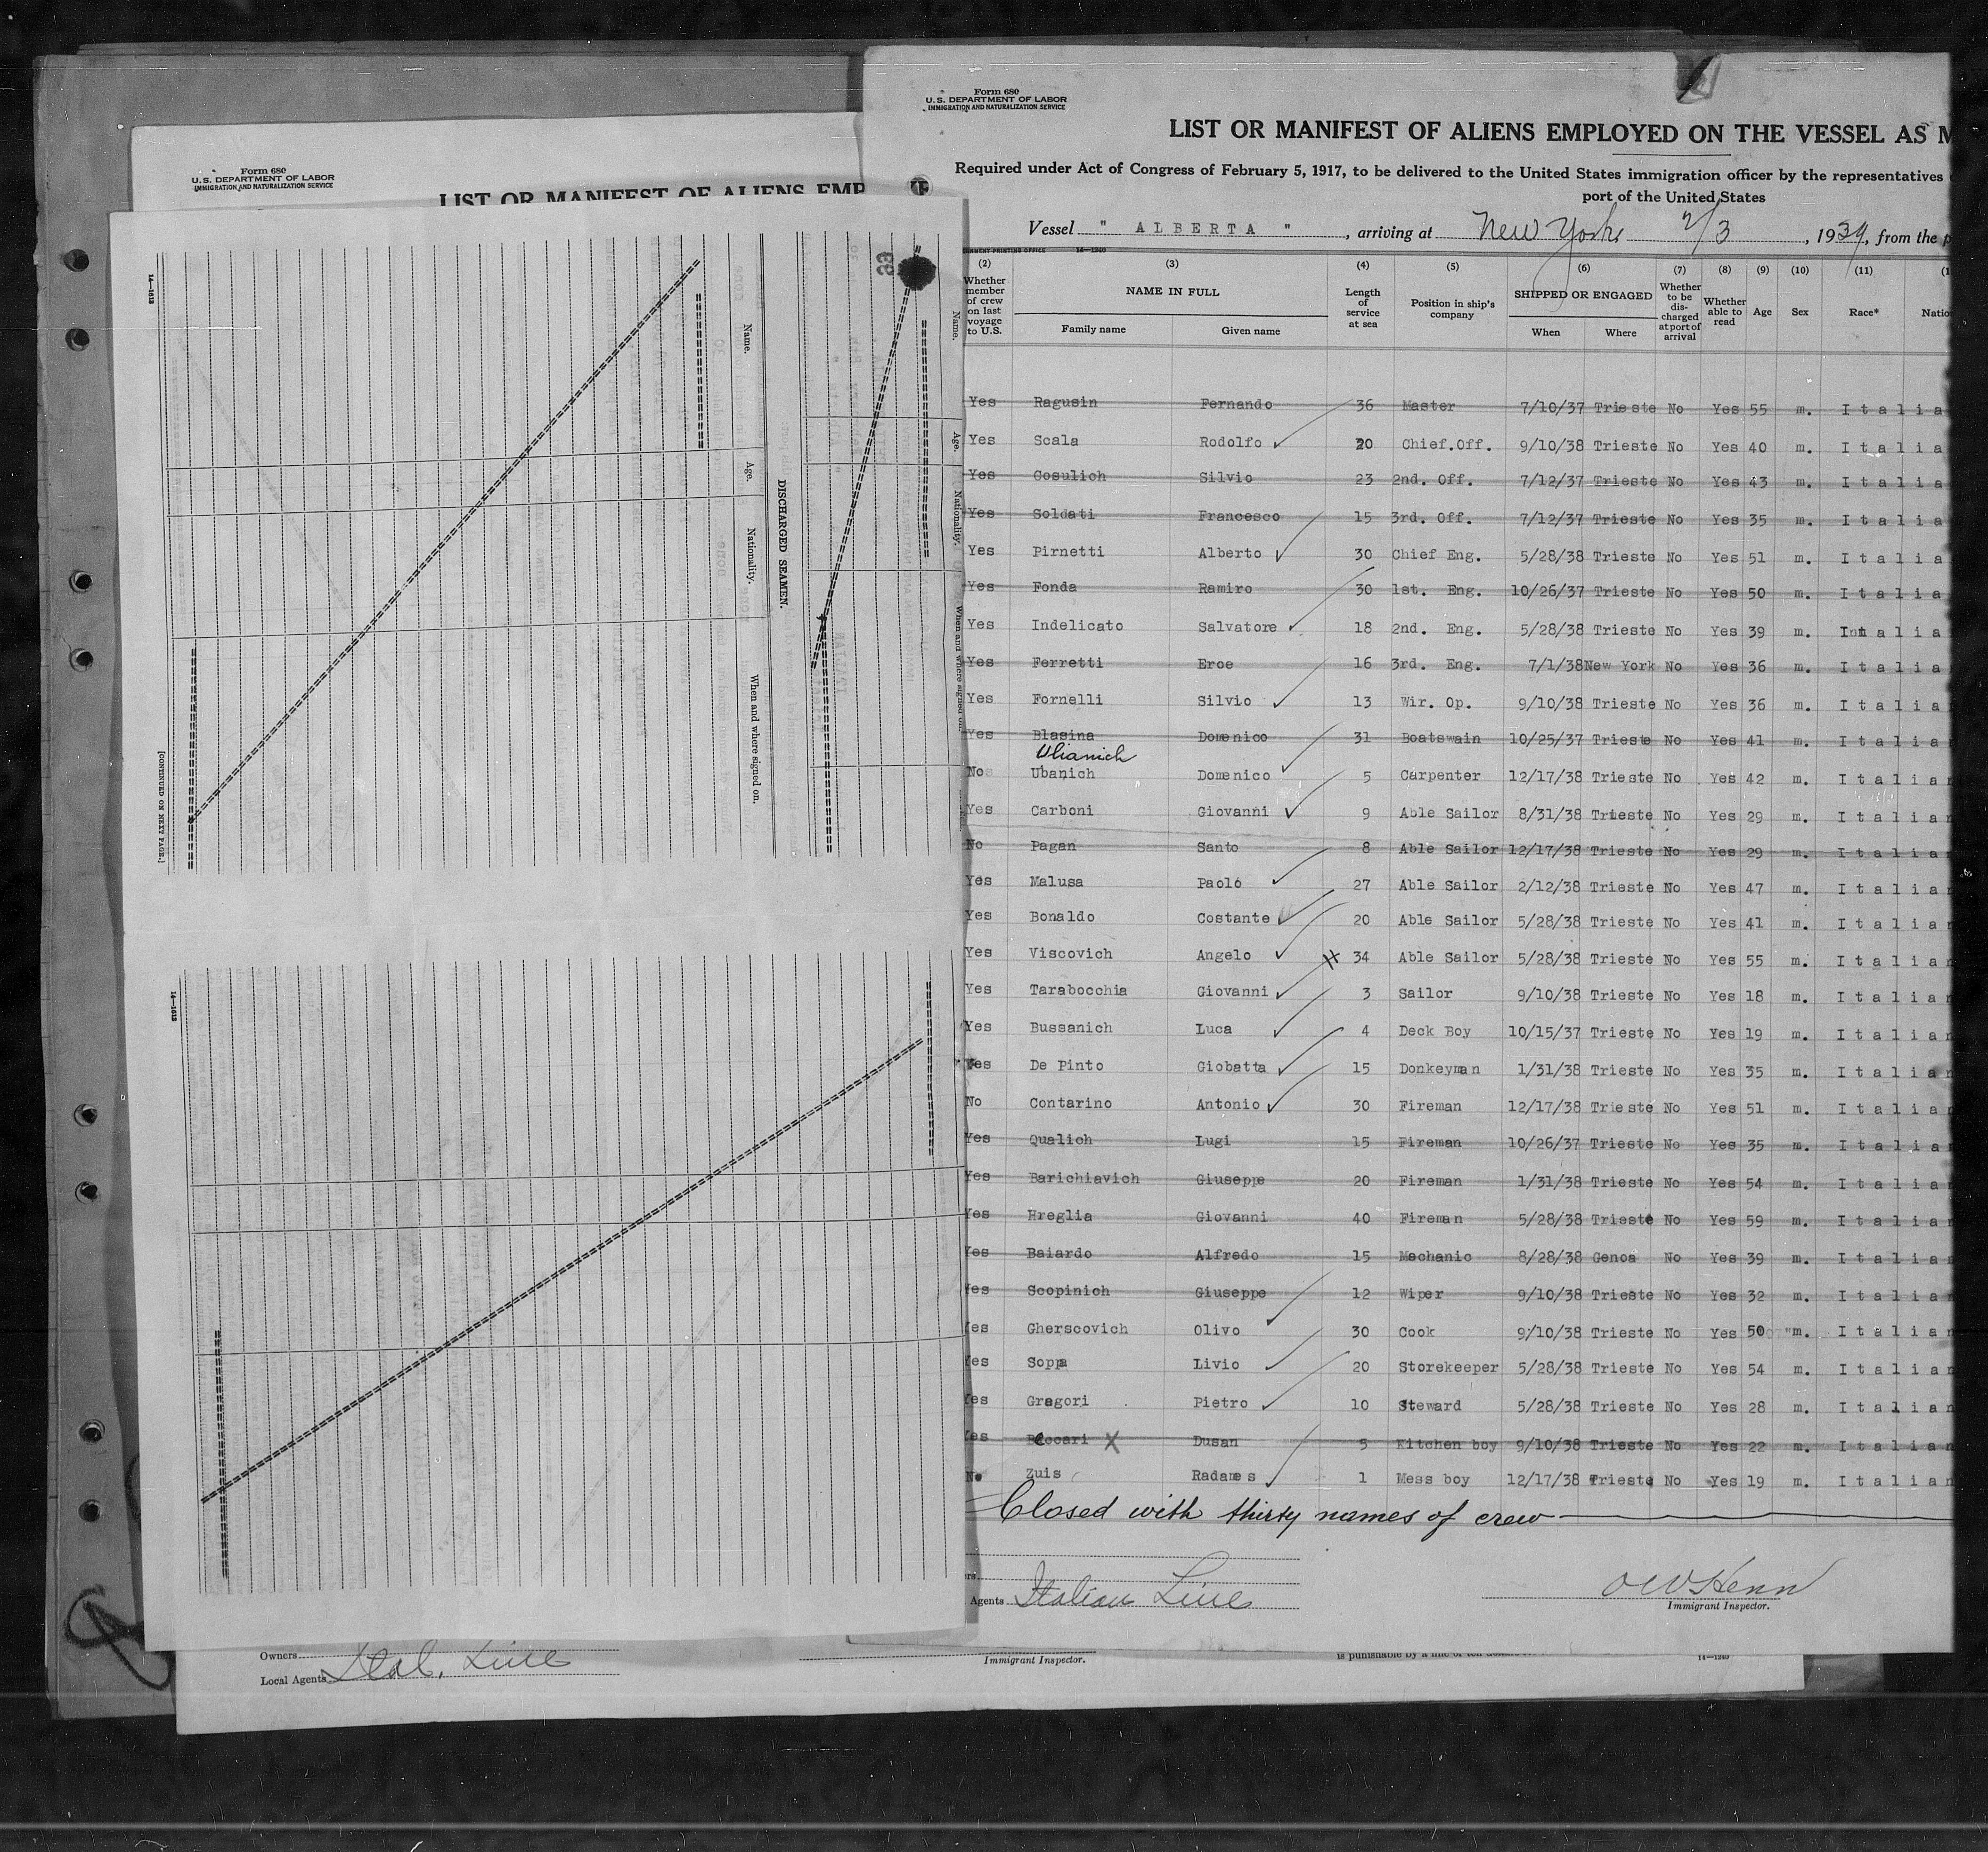 Form 680
U. S. DEPARTMENT OF LABOR
IMMIGRATION AND NATURALIZATION SERVICE
LIST OR MANIFEST OF ALIENS EMPLOYED ON THE VESSEL AS M
Required under Act of Congress of February 5, 1917, to be delivered to the United States immigration officer by the representatives
port of the United States
Vessel " ALBERTA " , arriving at New York 2/3 , 1939, from the p
(2) (3) (4) (5) (6) (7) (8) (9) (10) (11)
Whether member of crew on last voyage to U.S. NAME IN FULL Family name Given name Length of service at sea Position in ship's company SHIPPED OR ENGAGED When Where Whether to be discharged at port of arrival Whether able to read Age Sex Race* Natio
Yes Ragusin Fernando 36 Master 7/10/37 Trieste No Yes 55 m. Italia
Yes Scala Rodolfo 20 Chief.Off. 9/10/38 Trieste No Yes 40 m. Italia
Yes Cosulich Silvio 23 2nd. Off. 7/12/37 Trieste No Yes 43 m. Italia
Yes Soldati Francesco 15 3rd. Off. 7/12/37 Trieste No Yes 35 m. Italia
Yes Pirnetti Alberto 30 Chief Eng. 5/28/38 Trieste No Yes 51 m. Italia
Yes Fonda Ramiro 30 1st. Eng. 10/26/37 Trieste No Yes 50 m. Italia
Yes Indelicato Salvatore 18 2nd. Eng. 5/28/38 Trieste No Yes 39 m. Italia
Yes Ferretti Eroe 16 3rd. Eng. 7/1/38 New York No Yes 36 m. Italia
Yes Fornelli Silvio 13 Wir. Op. 9/10/38 Trieste No Yes 36 m. Italia
Yes Blasina Domenico 31 Boatswain 10/25/37 Trieste No Yes 41 m. Italia
Ulianich
No Ubanich Domenico 5 Carpenter 12/17/38 Trieste No Yes 42 m. Italian
Yes Carboni Giovanni 9 Able Sailor 8/31/38 Trieste No Yes 29 m. Italian
No Pagan Santo 8 Able Sailor 12/17/38 Trieste No Yes 29 m. Italian
Yes Malusa Paolo 27 Able Sailor 2/12/38 Trieste No Yes 47 m. Italian
Yes Bonaldo Costante 20 Able Sailor 5/28/38 Trieste No Yes 41 m. Italian
Yes Viscovich Angelo 34 Able Sailor 5/28/38 Trieste No Yes 55 m. Italian
Yes Tarabocchia Giovanni 3 Sailor 9/10/38 Trieste No Yes 18 m. Italian
Yes Bussanich Luca 4 Deck Boy 10/15/37 Trieste No Yes 19 m. Italian
Yes De Pinto Giobatta 15 Donkeyman 1/31/38 Trieste No Yes 35 m. Italian
No Contarino Antonio 30 Fireman 12/17/38 Trieste No Yes 51 m. Italian
Yes Qualich Lugi 15 Fireman 10/26/37 Trieste No Yes 35 m. Italian
Yes Barichiavich Giuseppe 20 Fireman 1/31/38 Trieste No Yes 54 m. Italian
Yes Hreglia Giovanni 40 Fireman 5/28/38 Trieste No Yes 59 m. Italian
Yes Baiardo Alfredo 15 Mechanic 8/28/38 Genoa No Yes 39 m. Italian
Yes Scopinich Giuseppe 12 Wiper 9/10/38 Trieste No Yes 32 m. Italian
Yes Gherscovich Olivo 30 Cook 9/10/38 Trieste No Yes 50 m. Italian
Yes Soppa Livio 20 Storekeeper 5/28/38 Trieste No Yes 54 m. Italian
Yes Gregori Pietro 10 Steward 5/28/38 Trieste No Yes 28 m. Italian
Yes Beccari X Dusan 5 Kitchen boy 9/10/38 Trieste No Yes 22 m. Italian
No Zuis Radames 1 Mess boy 12/17/38 Trieste No Yes 19 m. Italian
Closed with thirty names of crew
Agents Italian Line
Immigrant Inspector.
Form 680
U. S. DEPARTMENT OF LABOR
IMMIGRATION AND NATURALIZATION SERVICE
LIST OR MANIFEST OF ALIENS EMP
33
Name. Age. Nationality. When and where signed on.
DISCHARGED SEAMEN.
Name. Age. Nationality. When and where signed on.
14—1613
[CONTINUED ON NEXT PAGE.]
14—1613
Owners
Local Agents Ital. Line
Immigrant Inspector.
14—1240